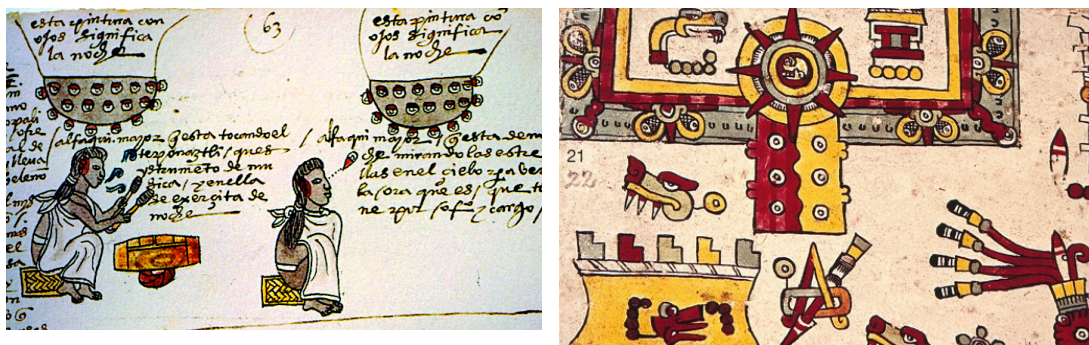 esta pintura con
ojos significa
la noche
63
esta pintura cõ
ojos significa
la noche
alfaqui mayor q esta tocando el
teponaztli / ques
ynstrumẽto de mu
sica / y en ella
se exerçita de
noche
/ alfaqui mayor / q esta de no
che mirando las estre
llas en el cielo y a ver
la ora que es / que ti
ne por ofiº y cargo /
21
22